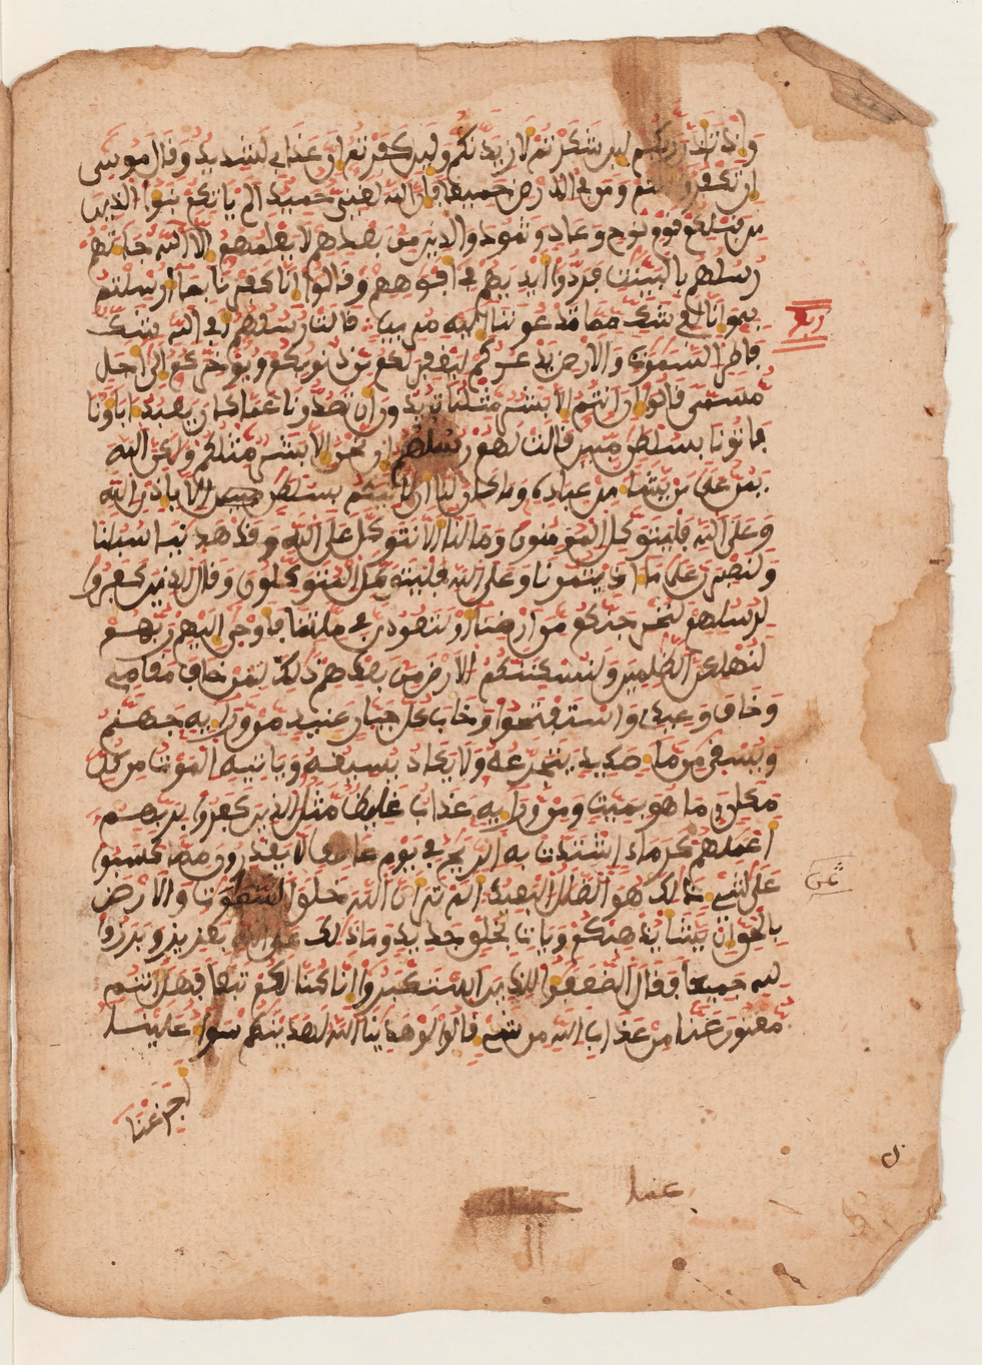 وَإِذ تَأَذَّنَ رَبُّكُمْ لَئِن شَكَرْتُمْ لَأَزِيدَنَّكُمْ وَلَئِن كَفَرْتُمْ إِنَّ عَذَابِي لَشَدِيدٌ وَقَالَ مُوسَى
إِن تَكْفُرُوا أَنتُمْ وَمَن فِي الْأَرْضِ جَمِيعًا فَإِنَّ اللَّهَ لَغَنِيٌّ حَمِيدٌ أَلَمْ يَأْتِكُمْ نَبَؤُا الَّذِينَ
مِن قَبْلِكُمْ قَوْمِ نُوحٍ وَعَادٍ وَثَمُودَ وَالَّذِينَ مِن بَعْدِهِمْ لَا يَعْلَمُهُمْ إِلَّا اللَّهُ جَاءَتْهُمْ
رُسُلُهُم بِالْبَيِّنَتِ فَرَدُّوا أَيْدِيَهُمْ فِي أَفْوَهِهِمْ وَقَالُوا إِنَّا كَفَرْنَا بِمَا أُرْسِلْتُم
بِهِ وَإِنَّا لَفِي شَكٍّ مِّمَّا تَدْعُونَنَا إِلَيْهِ مُرِيبٍ قَالَتْ رُسُلُهُمْ أَفِي اللَّهِ شَكٌّ
فَاطِرِ السَّمَوَتِ وَالْأَرْضِ يَدْعُوكُمْ لِيَغْفِرَ لَكُم مِّن ذُنُوبِكُمْ وَيُؤَخِّرَكُمْ إِلَى أَجَلٍ
مُّسَمًّى قَالُوا إِنْ أَنتُمْ إِلَّا بَشَرٌ مِّثْلُنَا تُرِيدُونَ أَن تَصُدُّونَا عَمَّا كَانَ يَعْبُدُ ءَابَاؤُنَا
فَاتُونَا بِسُلْطَنٍ مُّبِينٍ قَالَتْ لَهُمْ رُسُلُهُمْ إِن نَّحْنُ إِلَّا بَشَرٌ مِّثْلُكُمْ وَلَكِنَّ اللَّهَ
يَمُنُّ عَلَى مَن يَشَاءُ مِنْ عِبَادِهِ وَمَا كَانَ لَنَا أَن نَّأْتِيَكُم بِسُلْطَنٍ إِلَّا بِإِذْنِ اللَّهِ
وَعَلَى اللَّهِ فَلْيَتَوَكَّلِ الْمُؤْمِنُونَ وَمَا لَنَا أَلَّا نَتَوَكَّلَ عَلَى اللَّهِ وَقَدْ هَدَينَا سُبُلَنَا
وَلَنَصْبِرَنَّ عَلَى مَا ءَاذَيْتُمُونَا وَعَلَى اللَّهِ فَلْيَتَوَكَّلِ الْمُتَوَكِّلُونَ وَقَالَ الَّذِينَ كَفَرُوا
لِرُسُلِهِمْ لَنُخْرِجَنَّكُم مِّنْ أَرْضِنَا أَوْ لَتَعُودُنَّ فِي مِلَّتِنَا فَأَوْحَى إِلَيْهِمْ رَبُّهُمْ
لَنُهْلِكَنَّ الظَّلِمِينَ وَلَنُسْكِنَنَّكُمُ الْأَرْضَ مِن بَعْدِهِمْ ذَلِكَ لِمَنْ خَافَ مَقَامِي
وَخَافَ وَعِيدِ وَاسْتَفْتَحُوا وَخَابَ كُلُّ جَبَّارٍ عَنِيدٍ مِّن وَرَائِهِ جَهَنَّمُ
وَيُسْقَى مِن مَّاءٍ صَدِيدٍ يَتَجَرَّعُهُ وَلَا يَكَادُ يُسِيغُهُ وَيَاتِيهِ الْمَوْتُ مِن كُلِّ
مَكَانٍ وَمَا هُوَ بِمَيِّتٍ وَمِن وَرَائِهِ عَذَابٌ غَلِيظٌ مَّثَلُ الَّذِينَ كَفَرُوا بِرَبِّهِمْ
أَعْمَلُهُمْ كَرَمَادٍ اشْتَدَّتْ بِهِ الرِّيَحُ فِي يَوْمٍ عَاصِفٍ لَّا يَقْدِرُونَ مِمَّا كَسَبُوا
عَلَى شَيْءٍ ذَلِكَ هُوَ الضَّلَلُ الْبَعِيدُ أَلَمْ تَرَ أَنَّ اللَّهَ خَلَقَ السَّمَوَتِ وَالْأَرْضَ
بِالْحَقِّ إِن يَشَا يُذْهِبْكُمْ وَيَاتِ بِخَلْقٍ جَدِيدٍ وَمَا ذَلِكَ عَلَى اللَّهِ بِعَزِيزٍ وَبَرَزُوا
لِلَّهِ جَمِيعًا فَقَالَ الضُّعَفَؤُا لِلَّذِينَ اسْتَكْبَرُوا إِنَّا كُنَّا لَكُمْ تَبَعًا فَهَلْ أَنتُم
مُّغْنُونَ عَنَّا مِنْ عَذَابِ اللَّهِ مِن شَيْءٍ قَالُوا لَوْ هَدَينَا اللَّهُ لَهَدَيْنَكُمْ سَوَاءٌ عَلَيْنَا
أَجَزِعْنَا
ربع
ثمن